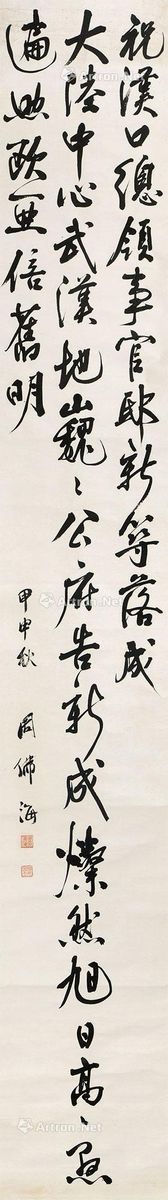 祝漢口總領事官邸新築落成
大陸中心武漢地巍々公府告新成燦然旭日高々懸
遍照歐亜倍舊明
甲申秋 周佛海
Artron.Net